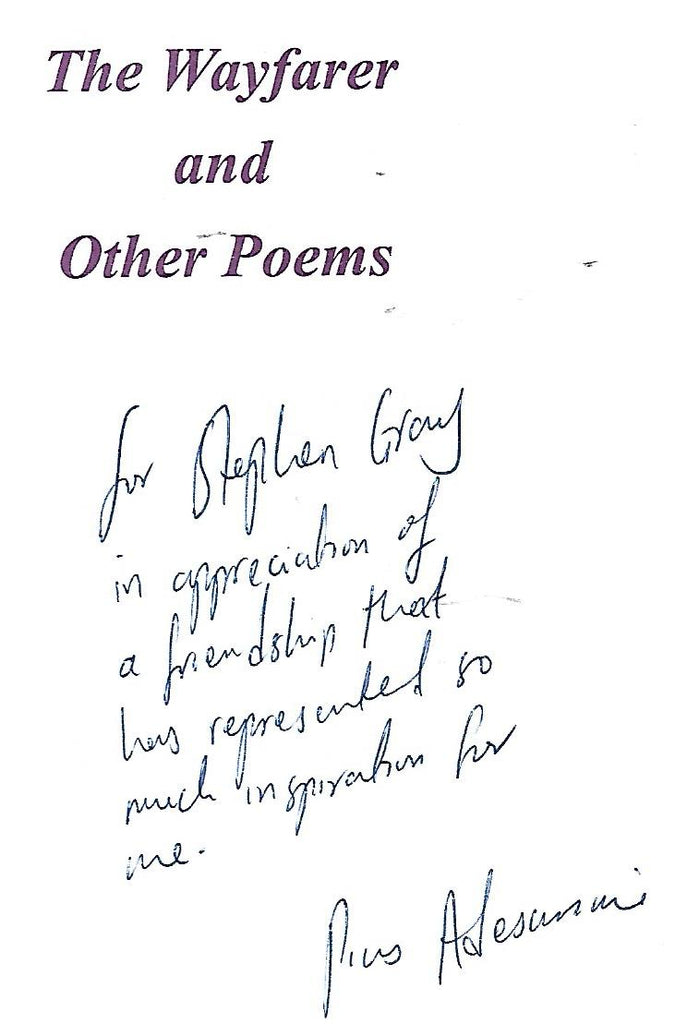 The Wayfarer
and
Other Poems
for Stephen Gray
in appreciation of
a friendship that
has represented so
much inspiration for
me.
Pius Adesanmi